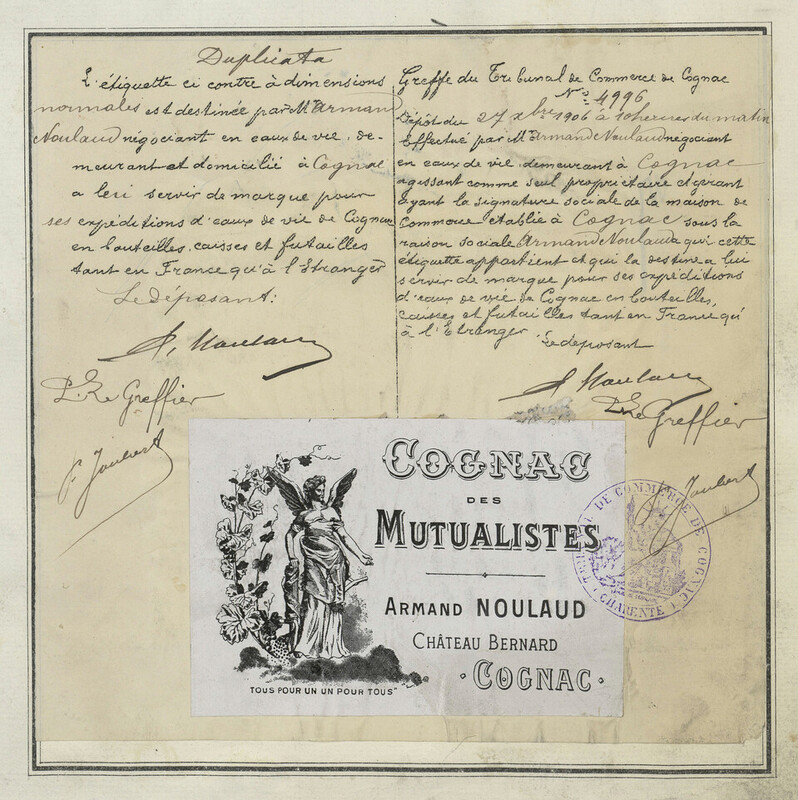 Duplicata
L'étiquette ci contre à dimensions
normales est destinée par Mr Armand
Noulaud négociant en eaux de vie, de-
meurant et domicilié à Cognac
a lui servir de marque pour
ses expéditions d'eaux de vie de Cognac
en bouteilles, caisses et futailles
tant en France qu'à l'Etranger
Le déposant:
A. Noulaud
P. Le Greffier
P. Joubert
Greffe du Tribunal de Commerce de Cognac
No 4996
Dépôt du 27 xbre 1906 à 10 heures du matin
Effectué par Mr Armand Noulaud négociant
en eaux de vie demeurant à Cognac
agissant comme seul propriétaire et gérant
ayant la signature sociale de la maison de
Commerce établie à Cognac sous la
raison sociale Armand Noulaud a qui cette
étiquette appartient et qui la destine a lui
servir de marque pour ses expéditions
d'eaux de vie de Cognac en bouteilles,
caisses et futailles tant en France qu'
à l'Etranger. Le déposant
A. Noulaud
P. Le Greffier
Joubert
COGNAC
DES
MUTUALISTES
ARMAND NOULAUD
CHÂTEAU BERNARD
·COGNAC·
TOUS POUR UN UN POUR TOUS"
TRIBUNAL DE COMMERCE DE COGNAC
(CHARENTE)